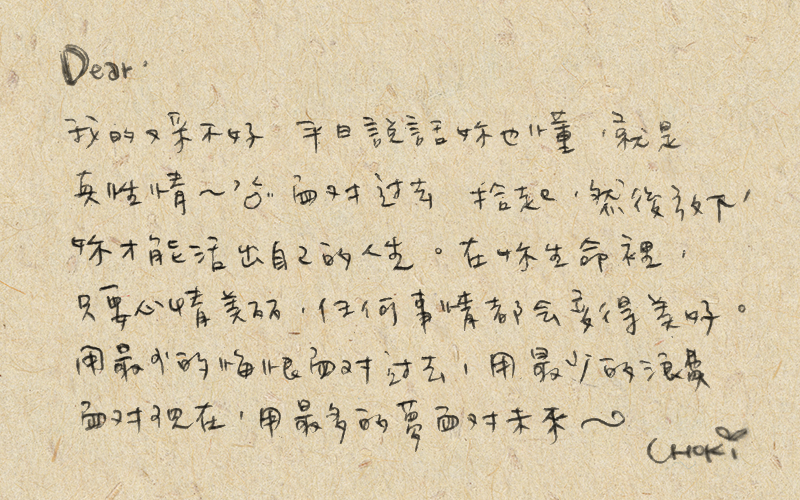 Dear.
我的文采不好 平日說話妳也懂，就是
真性情～哈哈 面对过去 拾起，然後放下，
妳才能活出自己的人生。在妳生命裡，
只要心情美丽，任何事情都会变得美好。
用最少的悔恨面对过去，用最少的浪费
面对现在，用最多的夢面对未來～
CHOKI